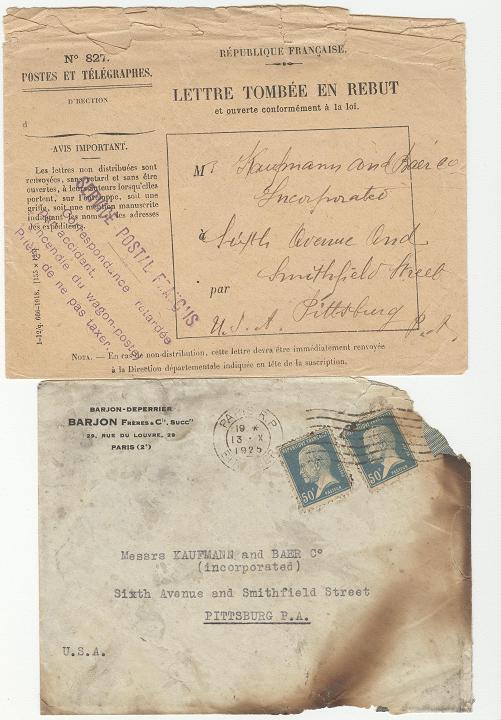 Nº 827.
POSTES ET TÉLÉGRAPHES.
DIRECTION
d
AVIS IMPORTANT.
Les lettres non distribuées sont
renvoyées, sans retard et sans être
ouvertes, à leurs auteurs lorsqu'elles
portent, sur l'enveloppe, soit une
griffe, soit une mention manuscrite
indiquant les noms et les adresses
des expéditeurs.
RÉPUBLIQUE FRANÇAISE.
LETTRE TOMBÉE EN REBUT
et ouverte conformément à la loi.
M Kaufmann and Baer Co
Incorporated
à Sixth Avenue and
Smithfield Street
par Pittsburg
U.S.A. P.A.
SERVICE POSTAL FRANÇAIS
Correspondance retardée
accident
incendie du wagon-postal
Prière de ne pas taxer.
NOTA. — En cas de non-distribution, cette lettre devra être immédiatement renvoyée
à la Direction départementale indiquée en tête de la suscription.
BARJON-DEPERRIER
BARJON FRÈRES & Cie, Succrs
29, RUE DU LOUVRE, 29
PARIS (2e)
PARIS R.P.
19 *
13 - X
1925
RÉPUBLIQUE FRANÇAISE
50c
PASTEUR
RÉPUBLIQUE FRANÇAISE
50c
PASTEUR
Messrs KAUFMANN and BAER Co
(incorporated)
Sixth Avenue and Smithfield Street
PITTSBURG P.A.
U.S.A.